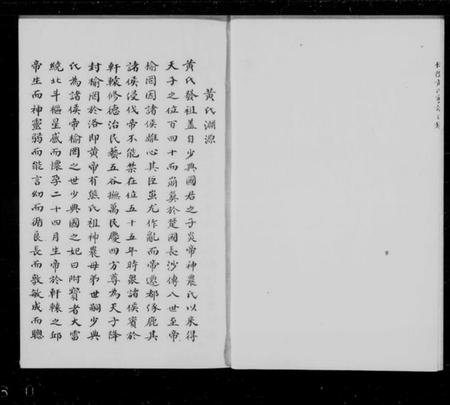 黃氏淵源
黃氏發祖蓋自少典國君之子炎帝神農氏以來得
天子之位百四十而崩葬於楚國長沙傳八世至帝
榆罔因諸侯雄心其臣蚩尤作亂而帝遷都涿鹿其
諸侯侵伐帝不能禁在位五十五年時眾諸侯賓於
軒轅修德治民藝五谷撫萬民慶四方尊為天子降
封榆罔於洛即黃帝有熊氏祖神農母弟世嗣少典
氏為諸侯帝榆罔之世少典國之妃曰附寶者大雷
繞北斗樞星感而懷孕二十四月生帝於軒轅之邱
帝生而神靈弱而能言幼而循良長而敦敏成而聰